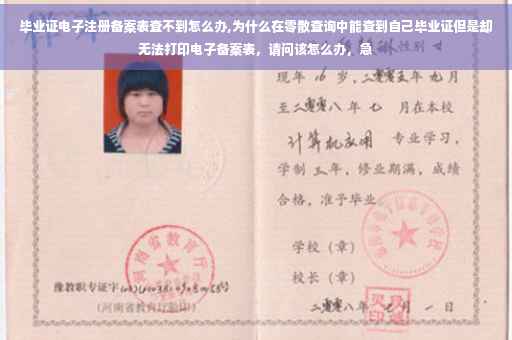 毕业证电子注册备案表查不到怎么办,为什么在零散查询中能查到自己毕业证但是却
无法打印电子备案表，请问该怎么办，急
性别 女
现年 16 岁，二零零五年 九月
至二零零八年 七 月在本校
计算机应用 专业学习，
学制 三 年，修业期满，成绩
合格，准予毕业
学校（章）
河南省教育厅
校长（章）
豫教职专证字
（河南省教育厅验印）
二零零八年 月 一 日